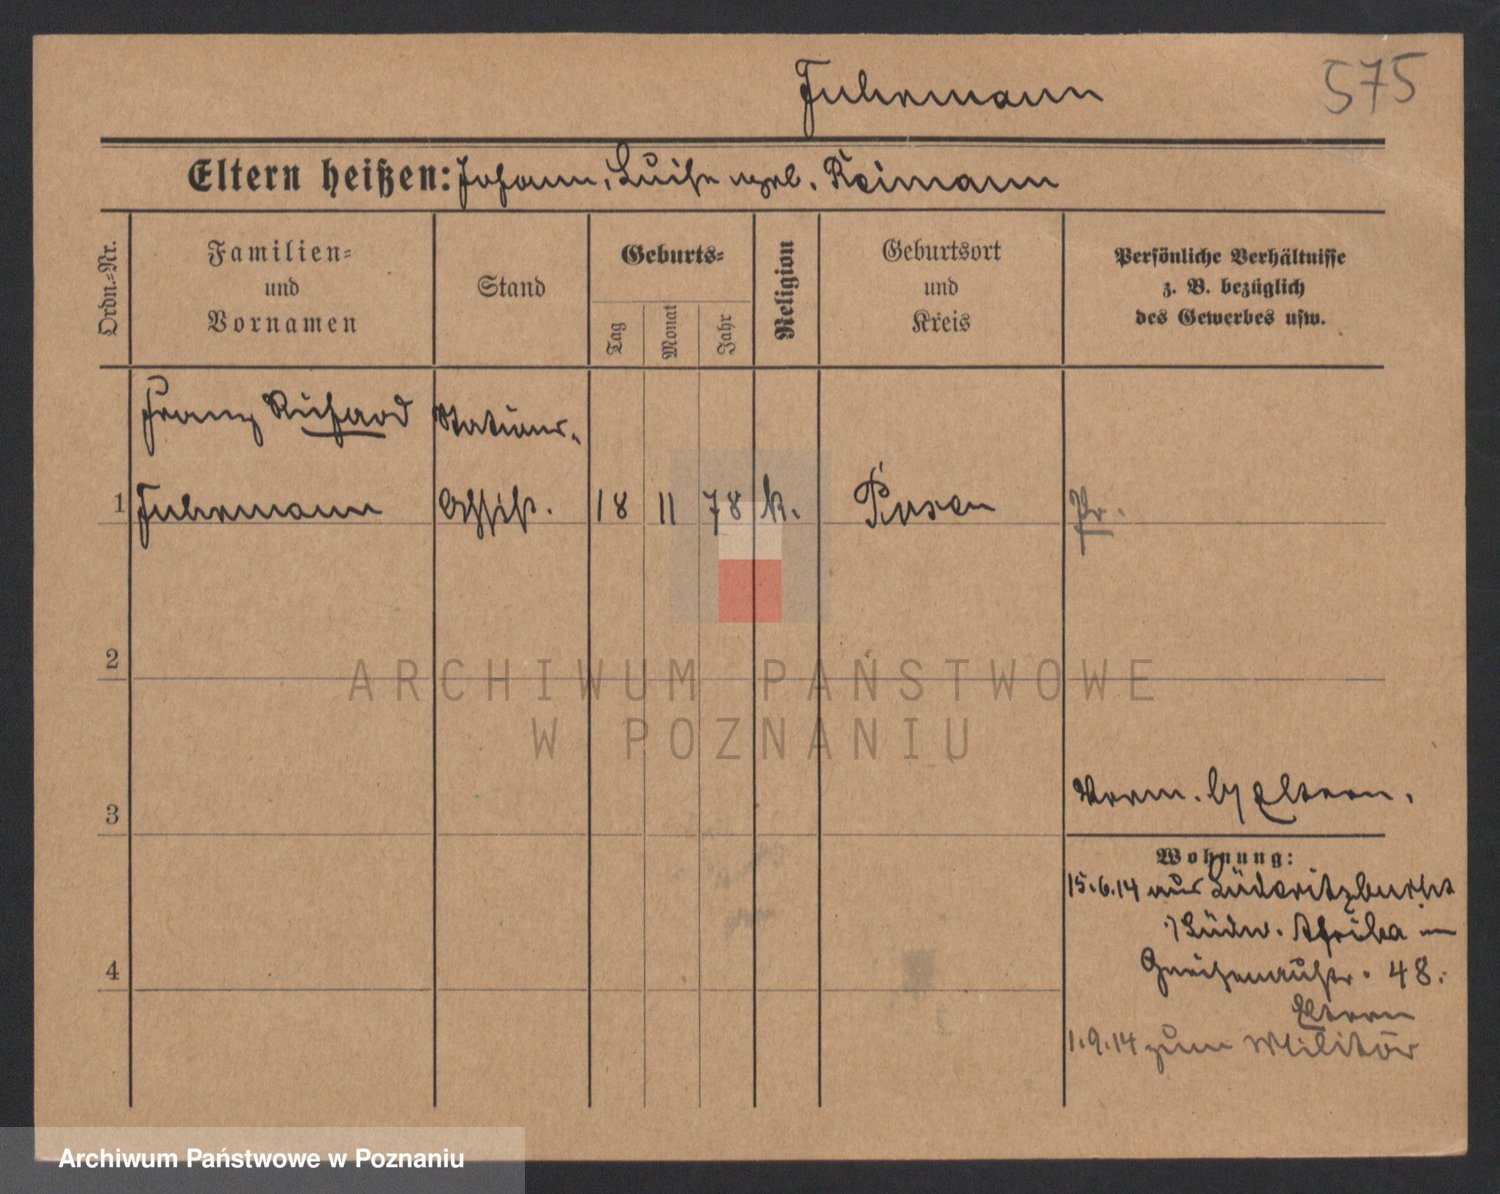 Fuhrmann
575
Eltern heißen: Johann, Luise geb. Reimann
Ordn.-Nr.
Familien-
und
Vornamen
Stand
Geburts-
Tag
Monat
Jahr
Religion
Geburtsort
und
Kreis
Persönliche Verhältnisse
z. B. bezüglich
des Gewerbes usw.
Franz Richard
Stations-
1
Fuhrmann
Assist.
18
11
78
k.
Posen
Pr.
2
ARCHIWUM PAŃSTWOWE
W POZNANIU
3
Eltern.
Wohnung:
15.6.14 aus Lüderitzbucht
Südw. Afrika
Gneisenaustr. 48.
Eltern
4
1.9.14 zum Militär
Archiwum Państwowe w Poznaniu